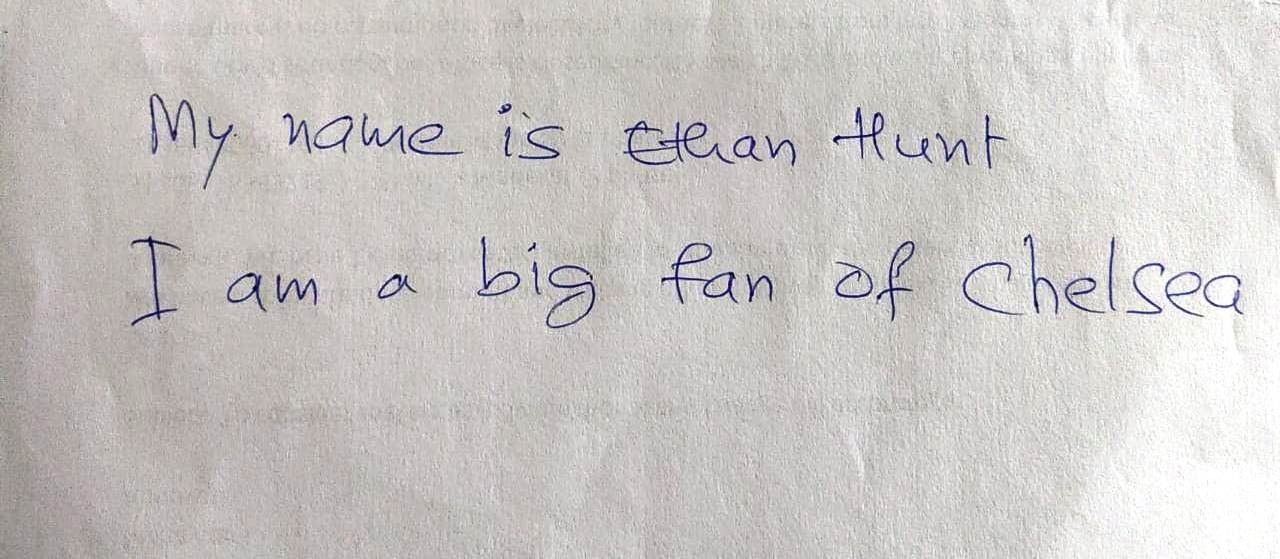 My name is Ethan Hunt
I am a big fan of Chelsea